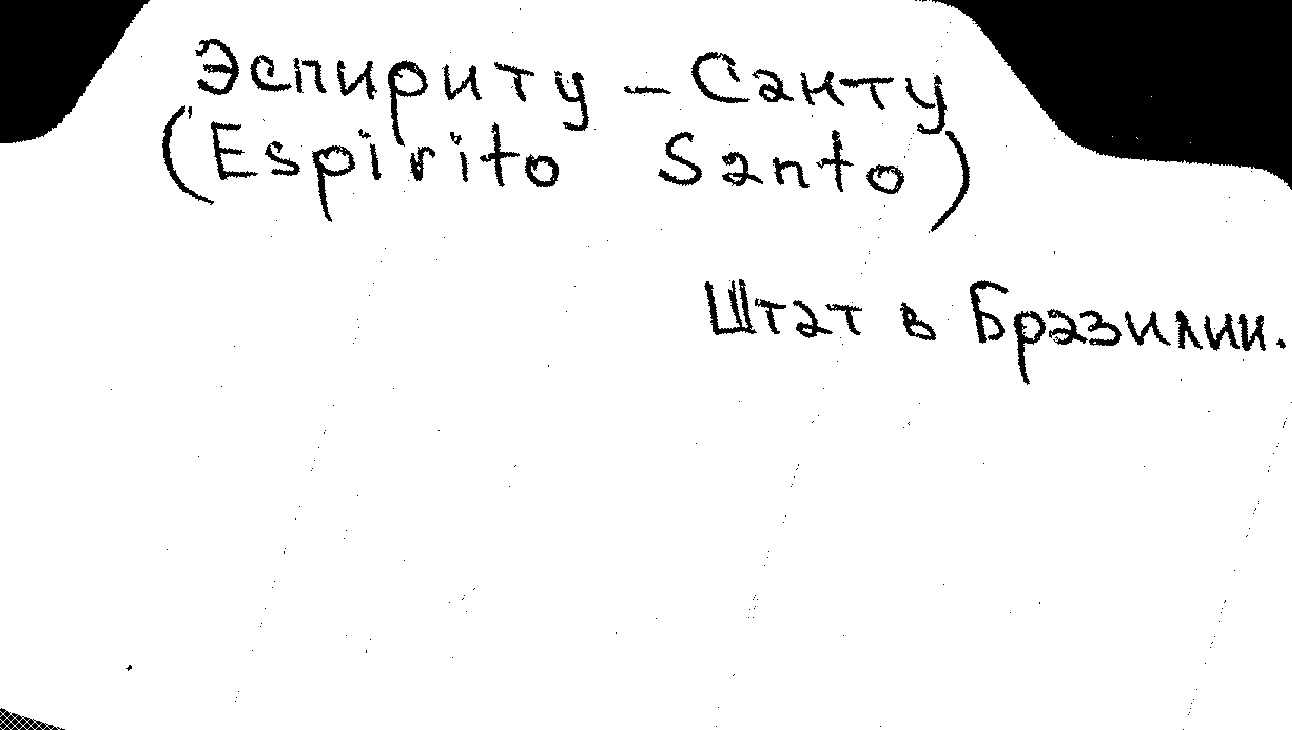 Эспириту - Санту
(Espirito Santo)
Штат в Бразилии.